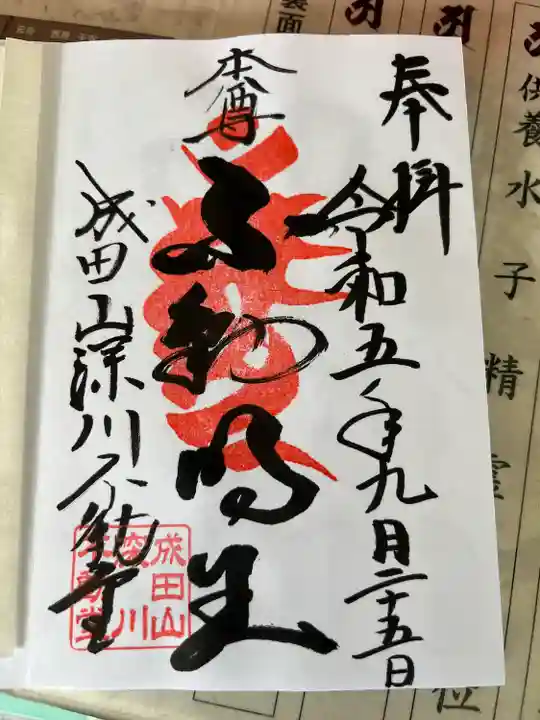 奉拝
令和五年九月二十五日
本尊
不動明王
成田山深川不動堂
成田山
深川
不動堂
裏面
供養水子精霊
位